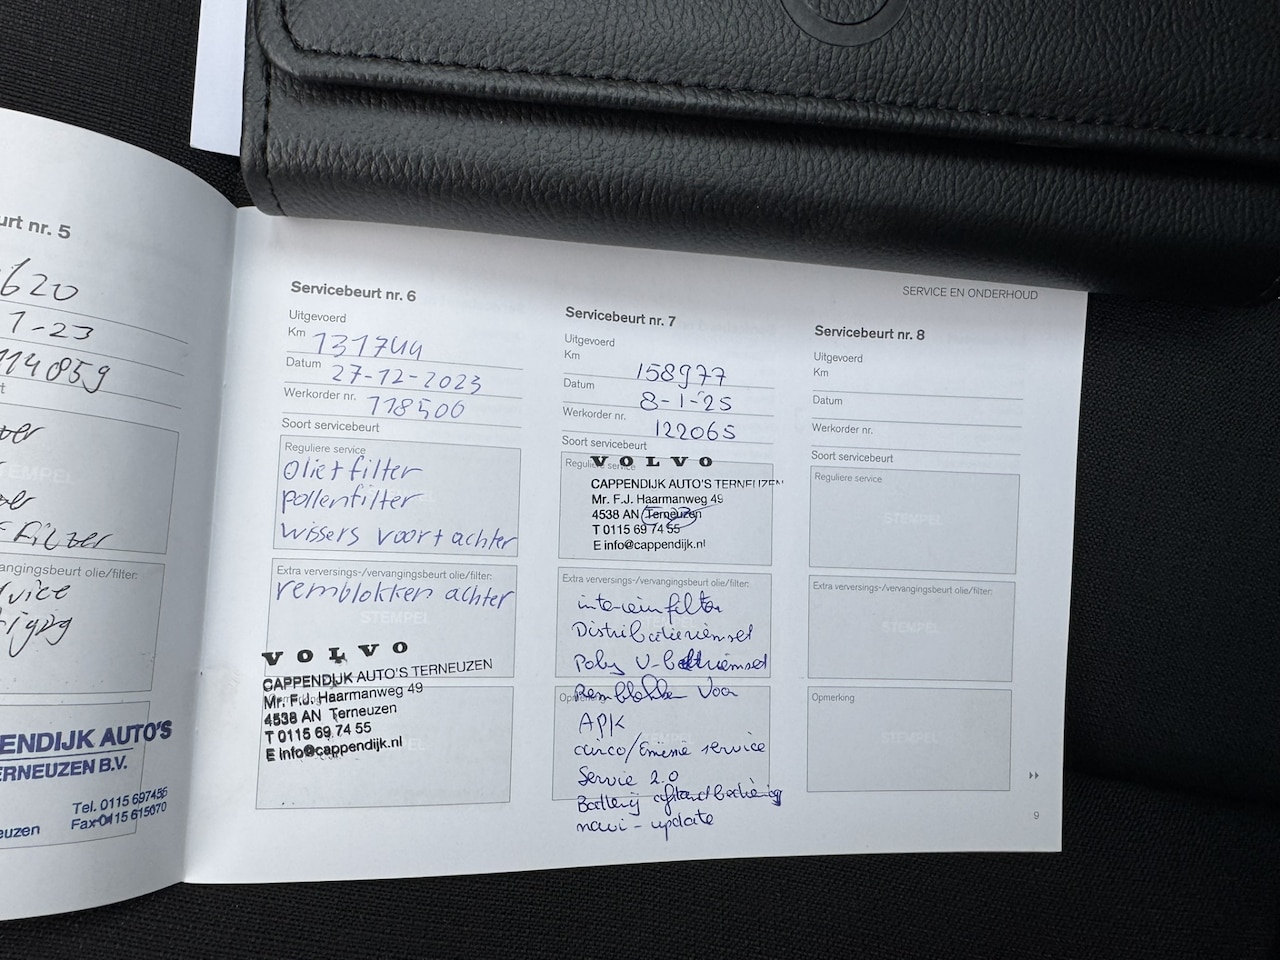 urt nr. 5
620
1-23
114059
t
STEMPEL
filter
vangingsbeurt olie/filter:
PENDIJK AUTO'S
ERNEUZEN B.V.
Tel. 0115 697455
euzen
Fax 0115 615070
SERVICE EN ONDERHOUD
Servicebeurt nr. 6
Uitgevoerd
Km 131744
Datum 27-12-2023
Werkorder nr. 118500
Soort servicebeurt
Reguliere service
olie + filter
pollenfilter
wissers voor + achter
Extra verversings-/vervangingsbeurt olie/filter:
remblokken achter
STEMPEL
VOLVO
CAPPENDIJK AUTO'S TERNEUZEN
Mr. F.J. Haarmanweg 49
4538 AN Terneuzen
T 0115 69 74 55
E info@cappendijk.nl
Servicebeurt nr. 7
Uitgevoerd
Km 158977
Datum 8-1-25
Werkorder nr. 122065
Soort servicebeurt
Reguliere service
VOLVO
CAPPENDIJK AUTO'S TERNEUZEN
Mr. F.J. Haarmanweg 49
4538 AN Terneuzen
T 0115 69 74 55
E info@cappendijk.nl
Extra verversings-/vervangingsbeurt olie/filter:
Distributieriemset
Poly V-
Remblokken voor
APK
airco/Emissie service
Servie 2.0
Batterij afstandbediening
navi-update
Servicebeurt nr. 8
Uitgevoerd
Km
Datum
Werkorder nr.
Soort servicebeurt
Reguliere service
STEMPEL
Extra verversings-/vervangingsbeurt olie/filter:
STEMPEL
Opmerking
STEMPEL
9